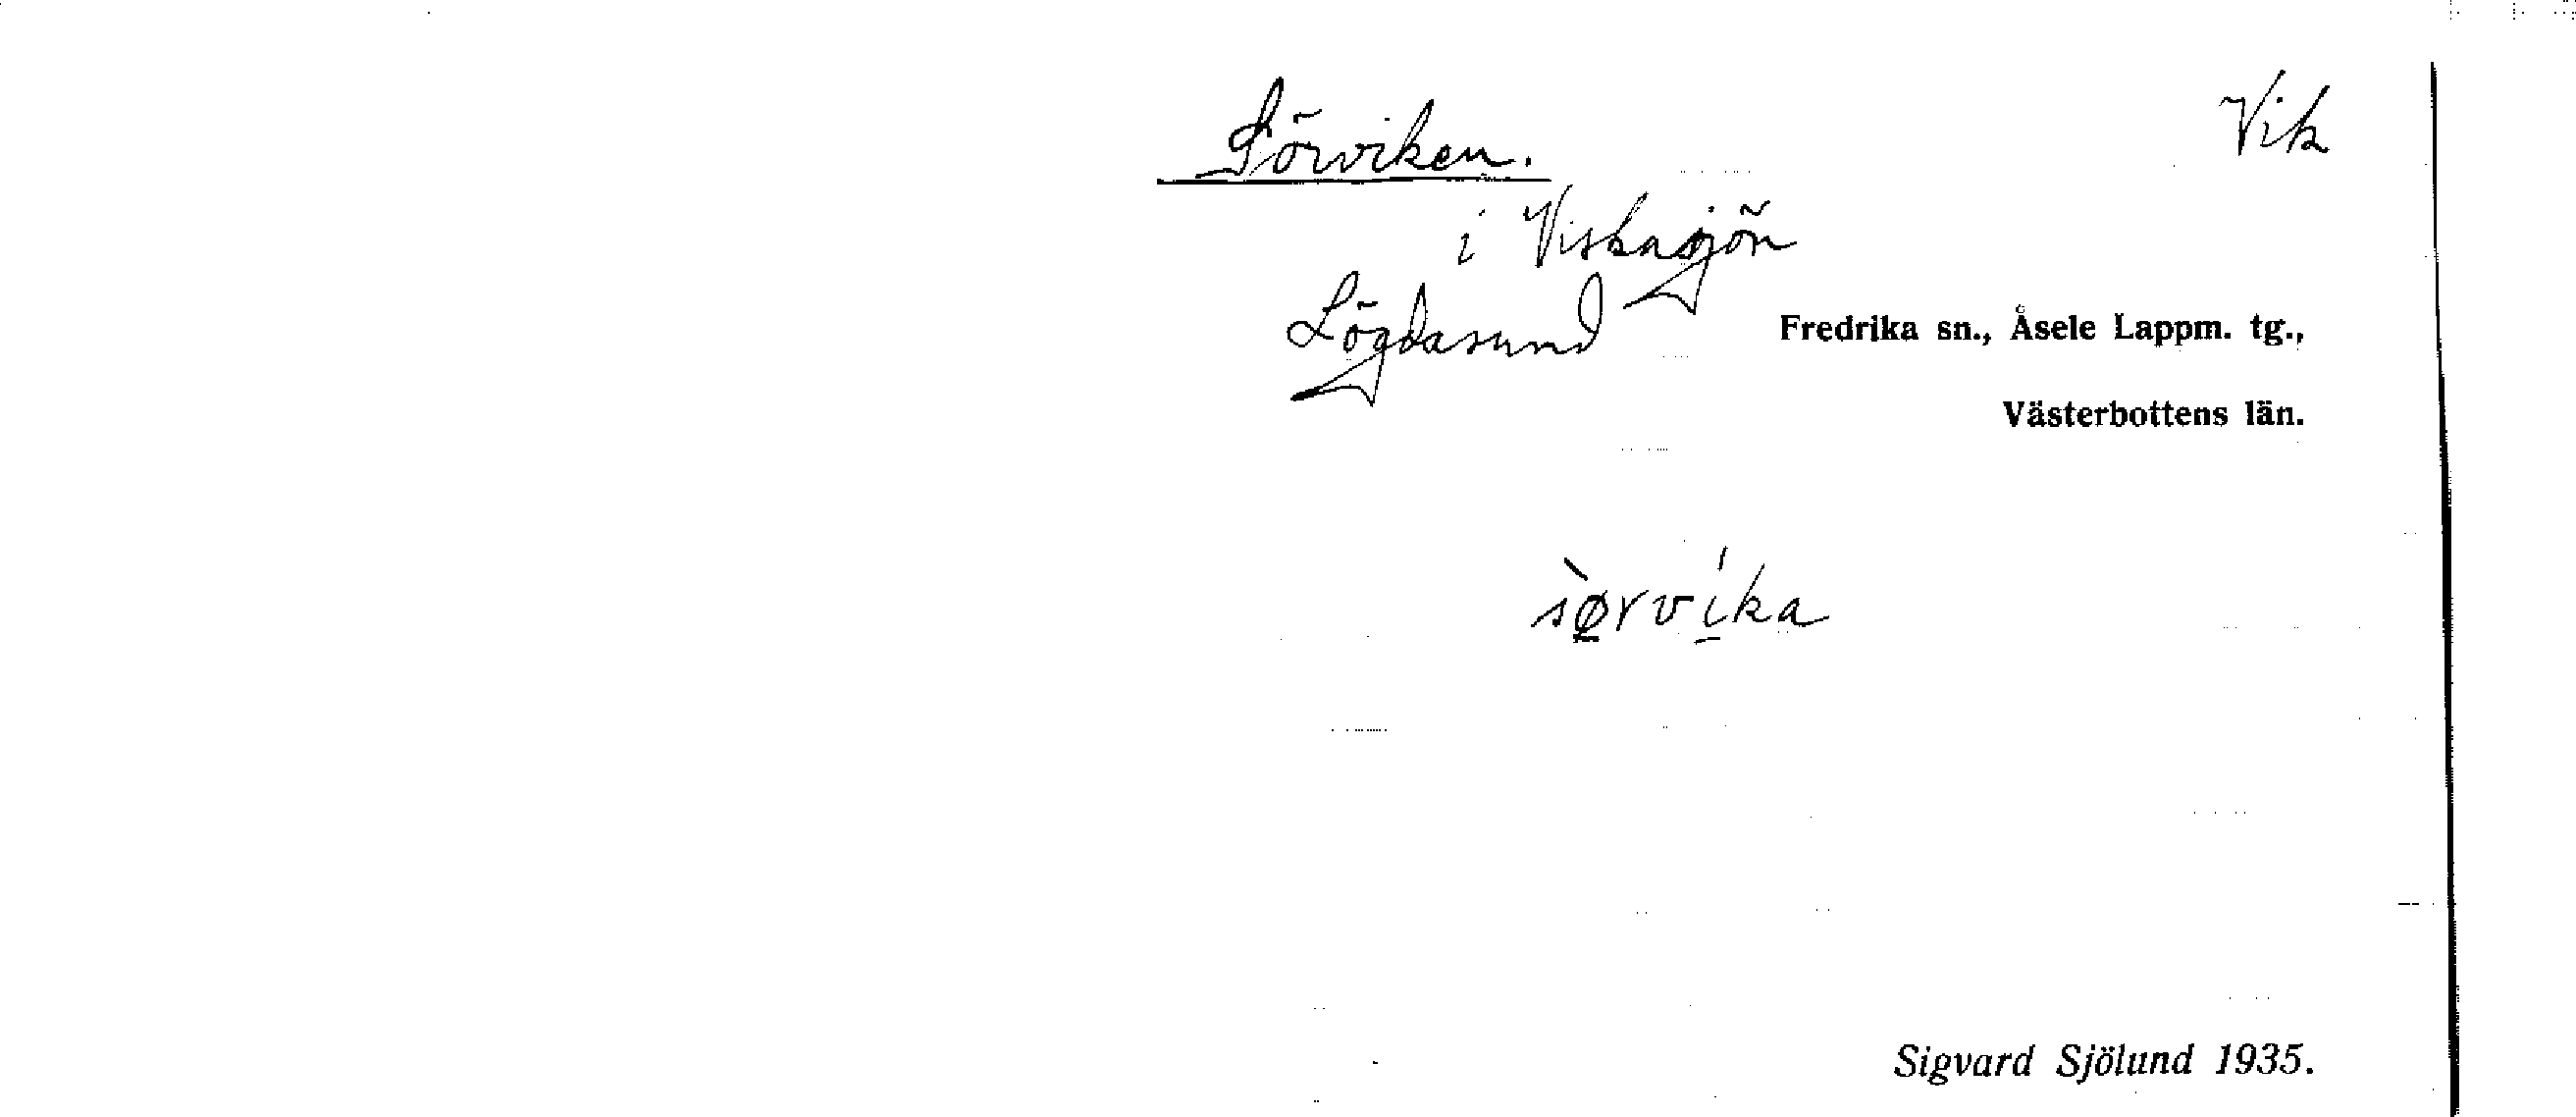 Sörviken.
Vik
i Viskasjön
Lögdasund
Fredrika sn., Åsele Lappm. tg.,
Västerbottens län.
sø̠̀rví̠ka
Sigvard Sjölund 1935.